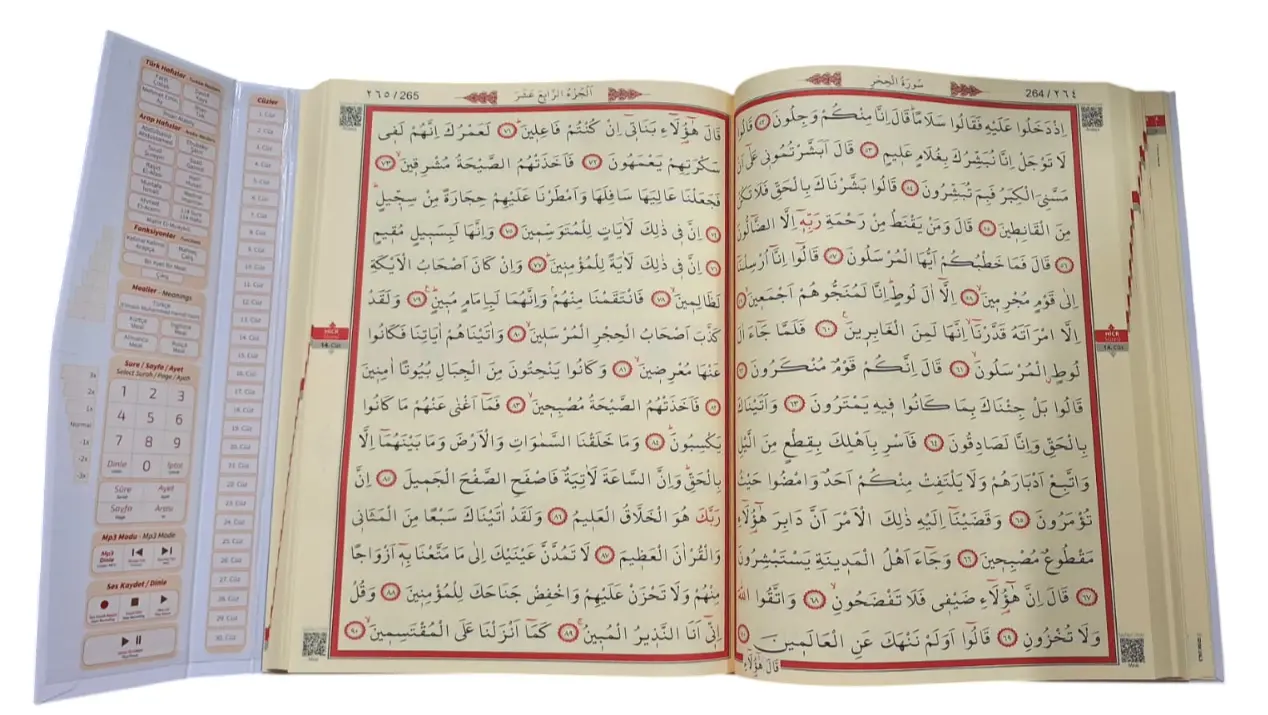 سُورَةُ الْحِجْرِ
264 / ٢٦٤
اِذْ دَخَلُوا عَلَيْهِ فَقَالُوا سَلَامًا قَالَ اِنَّا مِنْكُمْ وَجِلُونَ ﴿٥٢﴾ قَالُوا
لَا تَوْجَلْ اِنَّا نُبَشِّرُكَ بِغُلَامٍ عَلِيمٍ ﴿٥٣﴾ قَالَ اَبَشَّرْتُمُونِى عَلٰٓى اَنْ
مَسَّنِىَ الْكِبَرُ فَبِمَ تُبَشِّرُونَ ﴿٥٤﴾ قَالُوا بَشَّرْنَاكَ بِالْحَقِّ فَلَا تَكُنْ
مِنَ الْقَانِطِينَ ﴿٥٥﴾ قَالَ وَمَنْ يَقْنَطُ مِنْ رَحْمَةِ رَبِّهِٓ اِلَّا الضَّٓالُّونَ
﴿٥٦﴾ قَالَ فَمَا خَطْبُكُمْ اَيُّهَا الْمُرْسَلُونَ ﴿٥٧﴾ قَالُوٓا اِنَّٓا اُرْسِلْنَٓا
اِلٰى قَوْمٍ مُجْرِمِينَ ﴿٥٨﴾ اِلَّٓا اٰلَ لُوطٍ اِنَّا لَمُنَجُّوهُمْ اَجْمَعِينَ ﴿٥٩﴾
اِلَّا امْرَاَتَهُ قَدَّرْنَٓا اِنَّهَا لَمِنَ الْغَابِرِينَ ﴿٦٠﴾ فَلَمَّا جَٓاءَ اٰلَ
لُوطٍ الْمُرْسَلُونَ ﴿٦١﴾ قَالَ اِنَّكُمْ قَوْمٌ مُنْكَرُونَ ﴿٦٢﴾
قَالُوا بَلْ جِئْنَاكَ بِمَا كَانُوا فِيهِ يَمْتَرُونَ ﴿٦٣﴾ وَاَتَيْنَاكَ
بِالْحَقِّ وَاِنَّا لَصَادِقُونَ ﴿٦٤﴾ فَاَسْرِ بِاَهْلِكَ بِقِطْعٍ مِنَ الَّيْلِ
وَاتَّبِعْ اَدْبَارَهُمْ وَلَا يَلْتَفِتْ مِنْكُمْ اَحَدٌ وَامْضُوا حَيْثُ
تُؤْمَرُونَ ﴿٦٥﴾ وَقَضَيْنَٓا اِلَيْهِ ذٰلِكَ الْاَمْرَ اَنَّ دَابِرَ هٰٓؤُ۬لَٓاءِ
مَقْطُوعٌ مُصْبِحِينَ ﴿٦٦﴾ وَجَٓاءَ اَهْلُ الْمَدِينَةِ يَسْتَبْشِرُونَ
﴿٦٧﴾ قَالَ اِنَّ هٰٓؤُ۬لَٓاءِ ضَيْفِى فَلَا تَفْضَحُونِ ﴿٦٨﴾ وَاتَّقُوا اللّٰهَ
وَلَا تُخْزُونِ ﴿٦٩﴾ قَالُوٓا اَوَلَمْ نَنْهَكَ عَنِ الْعَالَمِينَ ﴿٧٠﴾
قَالَ هٰٓؤُ۬لَٓاءِ
HİCR
14. Cüz
اَلْجُزْءُ الرَّابِعَ عَشَرَ
265 / ٢٦٥
قَالَ هٰٓؤُ۬لَٓاءِ بَنَاتِٓى اِنْ كُنْتُمْ فَاعِلِينَ ﴿٧١﴾ لَعَمْرُكَ اِنَّهُمْ لَفِى
سَكْرَتِهِمْ يَعْمَهُونَ ﴿٧٢﴾ فَاَخَذَتْهُمُ الصَّيْحَةُ مُشْرِقِينَ ﴿٧٣﴾
فَجَعَلْنَا عَالِيَهَا سَافِلَهَا وَاَمْطَرْنَا عَلَيْهِمْ حِجَارَةً مِنْ سِجِّيلٍ
﴿٧٤﴾ اِنَّ فِى ذٰلِكَ لَاٰيَاتٍ لِلْمُتَوَسِّمِينَ ﴿٧٥﴾ وَاِنَّهَا لَبِسَبِيلٍ مُقِيمٍ
﴿٧٦﴾ اِنَّ فِى ذٰلِكَ لَاٰيَةً لِلْمُؤْمِنِينَ ﴿٧٧﴾ وَاِنْ كَانَ اَصْحَابُ الْاَيْكَةِ
لَظَالِمِينَ ﴿٧٨﴾ فَانْتَقَمْنَا مِنْهُمْ وَاِنَّهُمَا لَبِاِمَامٍ مُبِينٍ ﴿٧٩﴾ وَلَقَدْ
كَذَّبَ اَصْحَابُ الْحِجْرِ الْمُرْسَلِينَ ﴿٨٠﴾ وَاٰتَيْنَاهُمْ اٰيَاتِنَا فَكَانُوا
عَنْهَا مُعْرِضِينَ ﴿٨١﴾ وَكَانُوا يَنْحِتُونَ مِنَ الْجِبَالِ بُيُوتًا اٰمِنِينَ
﴿٨٢﴾ فَاَخَذَتْهُمُ الصَّيْحَةُ مُصْبِحِينَ ﴿٨٣﴾ فَمَٓا اَغْنٰى عَنْهُمْ مَا كَانُوا
يَكْسِبُونَ ﴿٨٤﴾ وَمَا خَلَقْنَا السَّمٰوَاتِ وَالْاَرْضَ وَمَا بَيْنَهُمَٓا اِلَّا
بِالْحَقِّ وَاِنَّ السَّاعَةَ لَاٰتِيَةٌ فَاصْفَحِ الصَّفْحَ الْجَمِيلَ ﴿٨٥﴾ اِنَّ
رَبَّكَ هُوَ الْخَلَّاقُ الْعَلِيمُ ﴿٨٦﴾ وَلَقَدْ اٰتَيْنَاكَ سَبْعًا مِنَ الْمَثَانِى
وَالْقُرْاٰنَ الْعَظِيمَ ﴿٨٧﴾ لَا تَمُدَّنَّ عَيْنَيْكَ اِلٰى مَا مَتَّعْنَا بِهِٓ اَزْوَاجًا
مِنْهُمْ وَلَا تَحْزَنْ عَلَيْهِمْ وَاخْفِضْ جَنَاحَكَ لِلْمُؤْمِنِينَ ﴿٨٨﴾ وَقُلْ
اِنِّٓى اَنَا النَّذِيرُ الْمُبِينُ ﴿٨٩﴾ كَمَٓا اَنْزَلْنَا عَلَى الْمُقْتَسِمِينَ ﴿٩٠﴾
HİCR
14. Cüz
Türk Hafızlar
Fatih Çollak
Davut Kaya
Arap Hafızlar
Mustafa İsmail
Fonksiyonlar - Functions
Mealler - Meanings
Türkçe
Kürtçe Meal
İngilizce Meal
Almanca Meal
Rusça Meal
Sure / Sayfa / Ayet
Select Surah / Page / Ayah
1 2 3
4 5 6
7 8 9
Dinle 0 İptal
Sûre Ayet
Sayfa Arama
Mp3 Modu - Mp3 Mode
Mp3 Dinle
Ses Kaydet / Dinle
3x
2x
1x
Normal
-1x
-2x
-3x
Cüzler
1. Cüz
2. Cüz
3. Cüz
4. Cüz
5. Cüz
6. Cüz
7. Cüz
8. Cüz
9. Cüz
10. Cüz
11. Cüz
12. Cüz
13. Cüz
14. Cüz
15. Cüz
16. Cüz
17. Cüz
18. Cüz
19. Cüz
20. Cüz
21. Cüz
22. Cüz
23. Cüz
24. Cüz
25. Cüz
26. Cüz
27. Cüz
28. Cüz
29. Cüz
30. Cüz